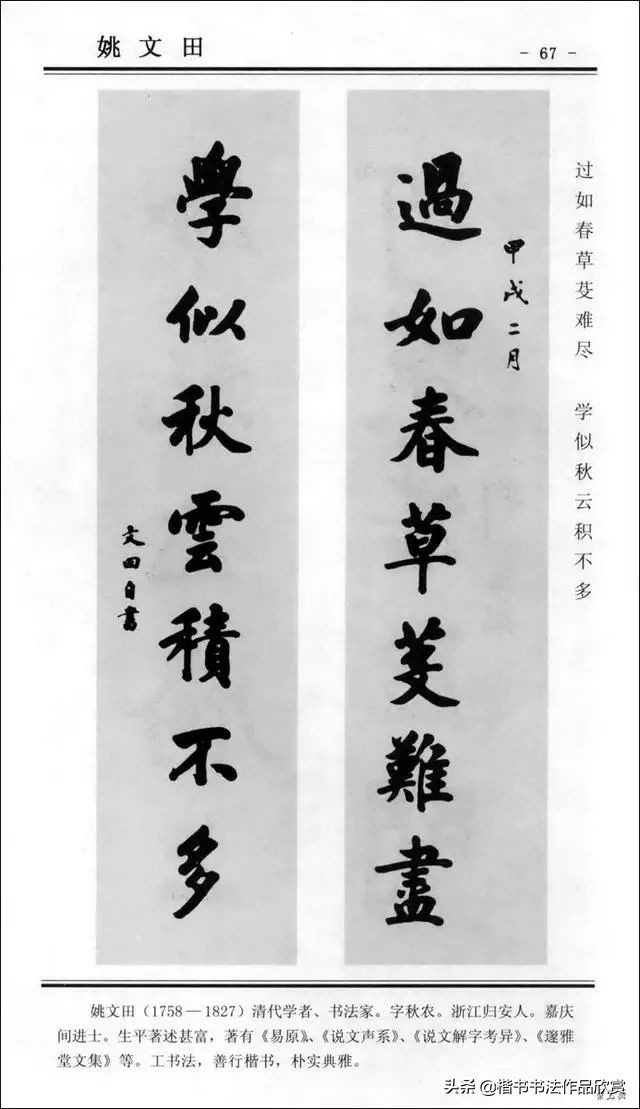 姚文田
- 67 -
过如春草芟难尽 学似秋云积不多
甲戌二月
過如春草芟難盡
學似秋雲積不多
文田自書
姚文田（1758—1827）清代学者、书法家。字秋农。浙江归安人。嘉庆
间进士。生平著述甚富，著有《易原》、《说文声系》、《说文解字考异》、《邃雅
堂文集》等。工书法，善行楷书，朴实典雅。
头条@楷书书法作品欣赏